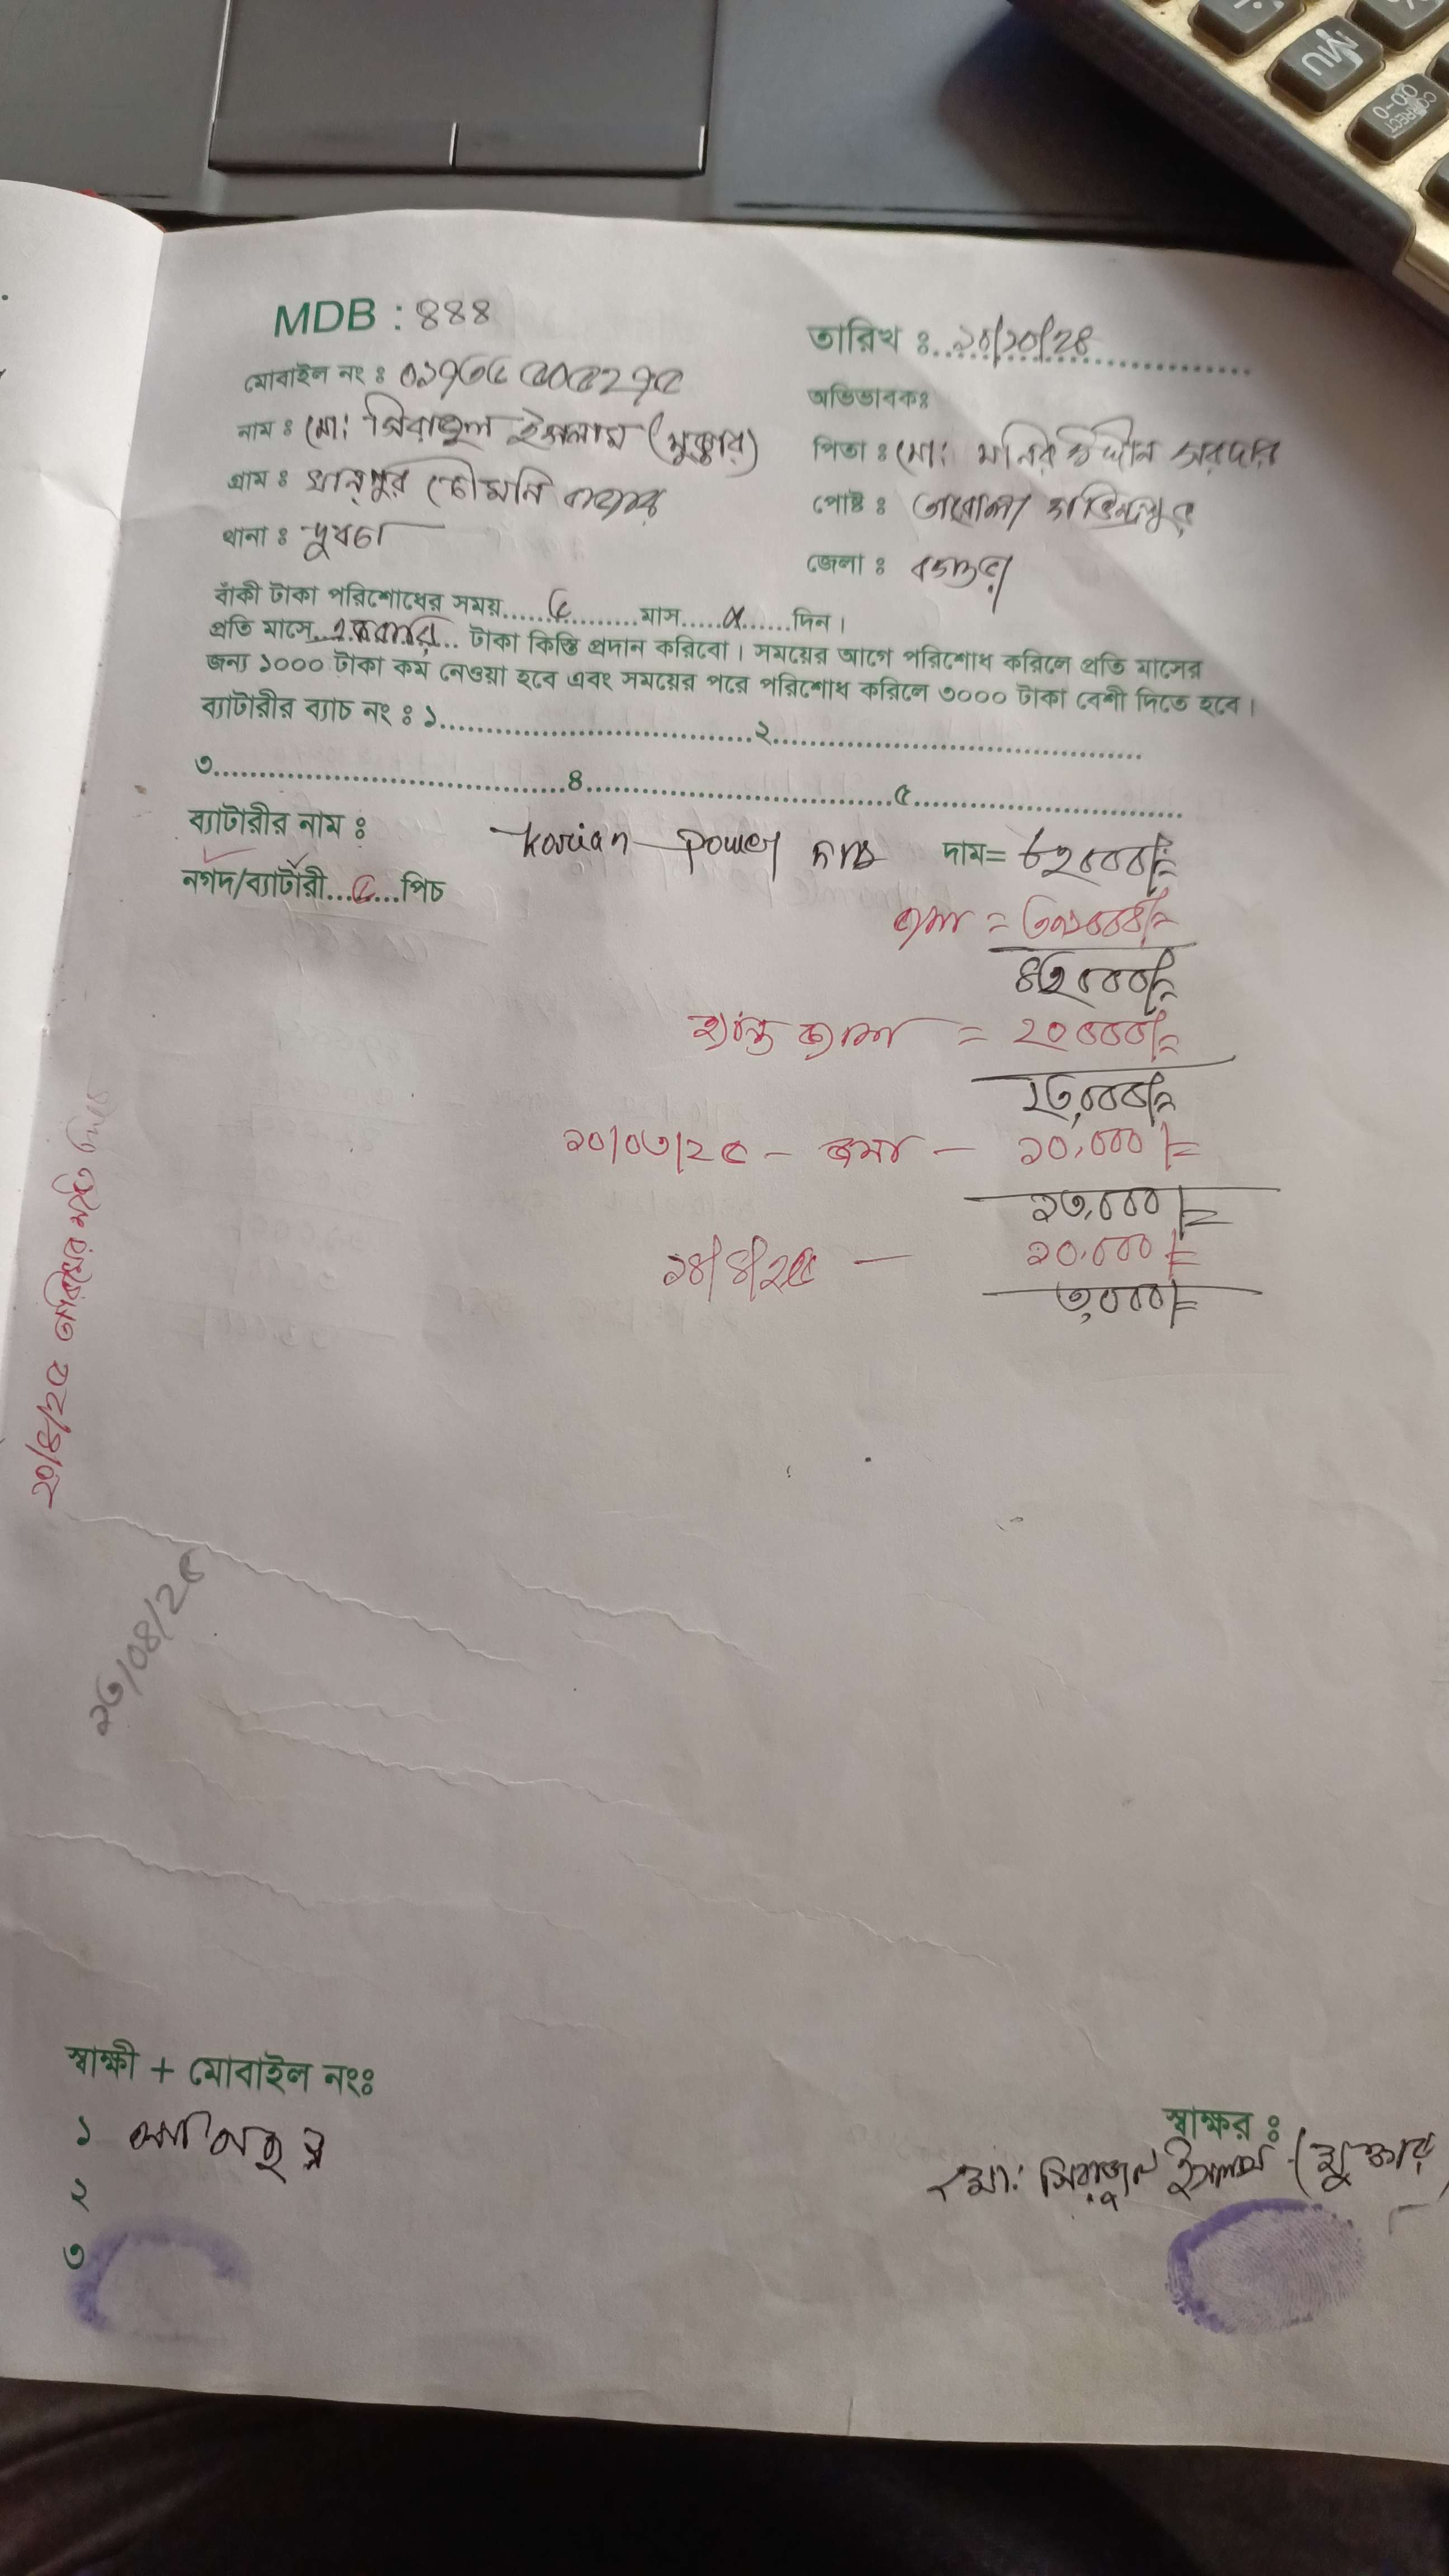 MDB : ৪৪৪
তারিখ ঃ ১৪/১০/২৪
মোবাইল নং ঃ
অভিভাবকঃ
নাম ঃ মো: সিরাজুল ইসলাম (মুক্তার)
পিতা ঃ মো: মনির উদ্দীন সরদার
গ্রাম ঃ খানপুর চৌমনি বাজার
পোষ্ট ঃ
থানা ঃ দুপচা
জেলা ঃ বগুড়া
বাঁকী টাকা পরিশোধের সময়......৫......মাস......দিন।
প্রতি মাসে...একবারে... টাকা কিস্তি প্রদান করিবো। সময়ের আগে পরিশোধ করিলে প্রতি মাসের
জন্য ১০০০ টাকা কম নেওয়া হবে এবং সময়ের পরে পরিশোধ করিলে ৩০০০ টাকা বেশী দিতে হবে।
ব্যাটারীর ব্যাচ নং ঃ ১..............................২..............................
৩..............................৪..............................৫..............................
ব্যাটারীর নাম ঃ Korian Power দাম= ৮২০০০/=
নগদ/ব্যাটারী...৫...পিচ
জমা = ৩৯০০০/=
৪৩০০০/=
জমা = ২০০০০/=
২৩,০০০/=
১০/০৩/২৫ - জমা - ১০,০০০/=
১৩,০০০/=
১৪/৪/২৫ — ১০,০০০/=
৩,০০০/=
২০/৪/২৫ তারিখের মধ্যে দিবে
২৩/০৪/২৫
স্বাক্ষী + মোবাইল নংঃ
১
২
৩
স্বাক্ষর ঃ
মো: সিরাজুল ইসলাম (মুক্তার)